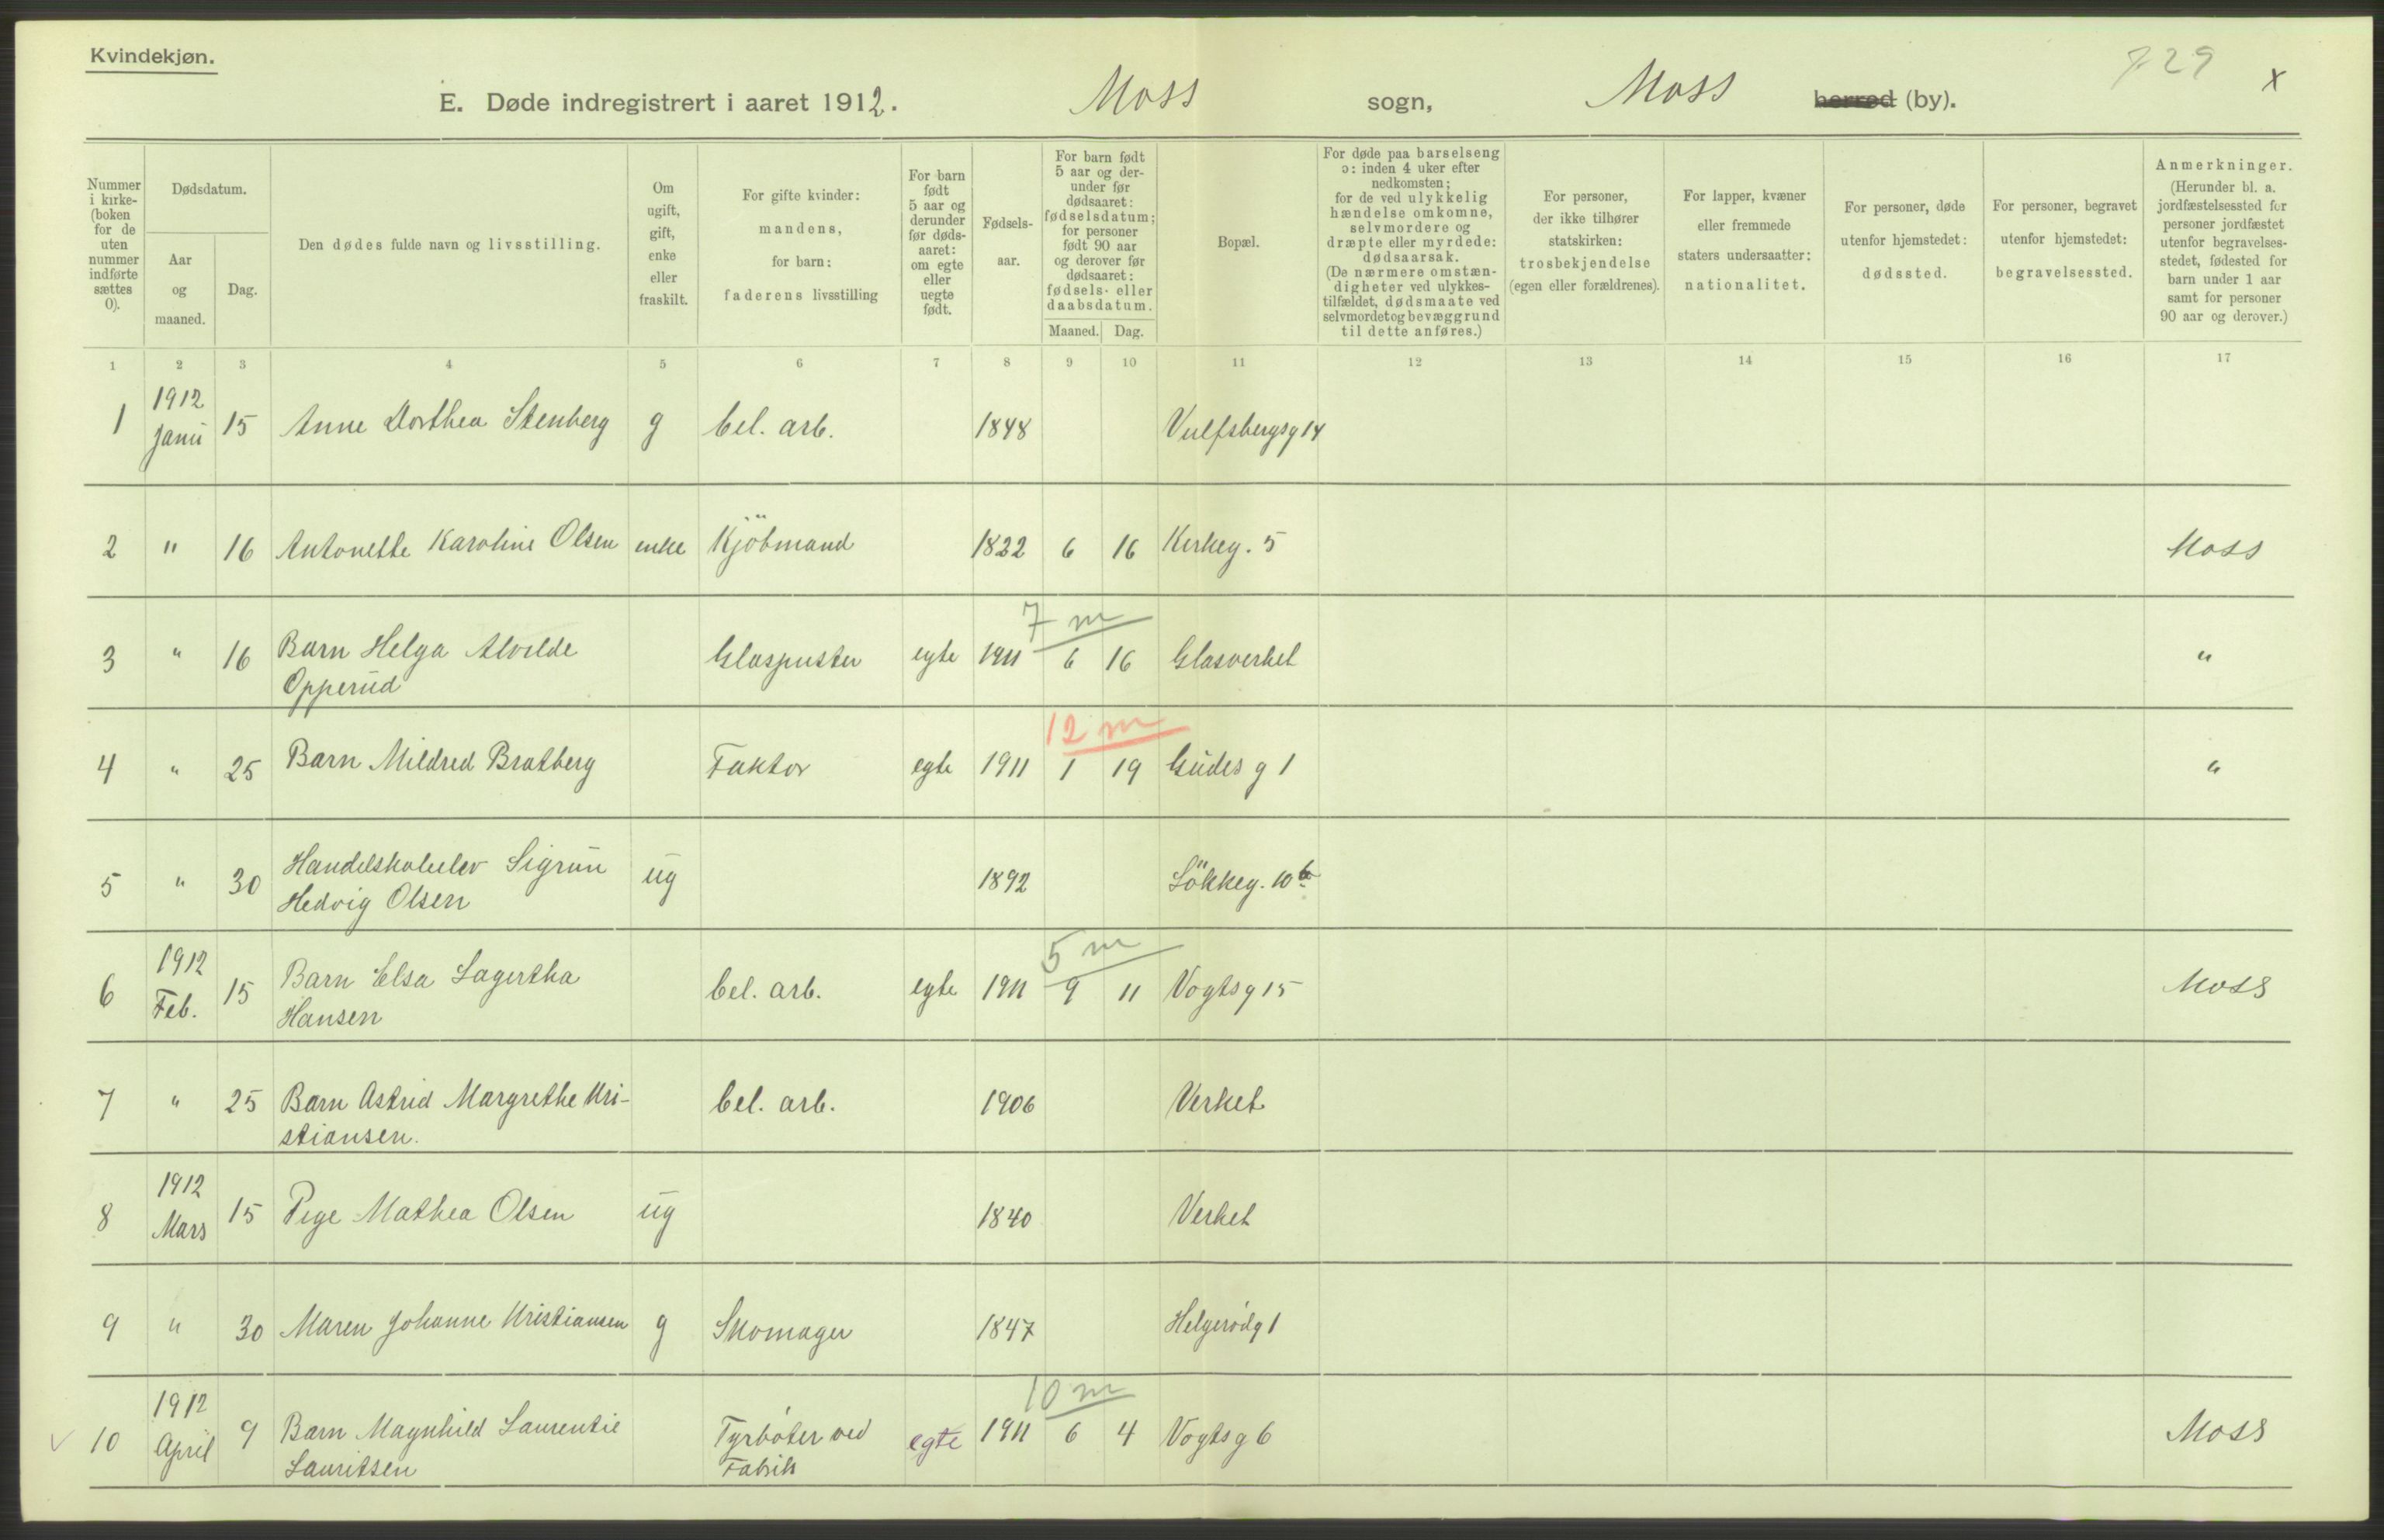 Kvindekjøn.
729 x
E. Døde indregistrert i aaret 1912. Moss sogn, Moss herred (by).
Nummer i kirke-(boken for de uten nummer indførte sættes 0).
Dødsdatum.
Aar og maaned.
Dag.
Den dødes fulde navn og livsstilling.
Om ugift, gift, enke eller fraskilt.
For gifte kvinder: mandens, for barn: faderens livsstilling
For barn født 5 aar og derunder før døds-aaret: om egte eller uegte født.
Fødsels-aar.
For barn født 5 aar og der-under før dødsaaret: fødselsdatum; for personer født 90 aar og derover før dødsaaret: fødsels- eller daabsdatum.
Maaned. Dag.
Bopæl.
For døde paa barselseng ɔ: inden 4 uker efter nedkomsten; for de ved ulykkelig hændelse omkomne, selvmordere og dræpte eller myrdede: dødsaarsak. (De nærmere omstæn-digheter ved ulykkes-tilfældet, dødsmaate ved selvmordet og bevæggrund til dette anføres.)
For personer, der ikke tilhører statskirken: trosbekjendelse (egen eller forældrenes).
For lapper, kvæner eller fremmede staters undersaatter: nationalitet.
For personer, døde utenfor hjemstedet: dødssted.
For personer, begravet utenfor hjemstedet: begravelsessted.
Anmerkninger. (Herunder bl. a. jordfæstelsessted for personer jordfæstet utenfor begravelses-stedet, fødested for barn under 1 aar samt for personer 90 aar og derover.)
1 2 3 4 5 6 7 8 9 10 11 12 13 14 15 16 17
1 1912 Janu 15 Anne Dorthea Stenberg g bel. arb. 1848 Vulfsbergsg 14
2 " 16 Antonette Karoline Olsen enke Kjöbmand 1822 6 16 Kirkeg. 5 Moss
7 m
3 " 16 Barn Helga Alvilde Glaspuster egte 1911 6 16 Glasverket "
Opperud
12 m
4 " 25 Barn Mildred Bratberg Faktor egte 1911 1 19 Gudes g 1 "
5 " 30 Handelskoleelev Sigrun ug 1892 Lökkeg. 10 b
Hedvig Olsen
5 m
6 1912 Feb. 15 Barn Elsa Lagertha bel. arb. egte 1911 9 11 Vogtsg 15 Moss
Hansen
7 " 25 Barn Astrid Margrethe Kri- bel. arb. 1906 Verket
stiansen.
8 1912 Mars 15 Pige Mathea Olsen ug 1840 Verket
9 " 30 Maren Johanne Kristiansen g Skomager 1847 Helgerödg 1
10 m
10 1912 April 9 Barn Magnhild Laurentie Fyrböter ved egte 1911 6 4 Vogtsg 6 Moss
Lauritsen Fabrik